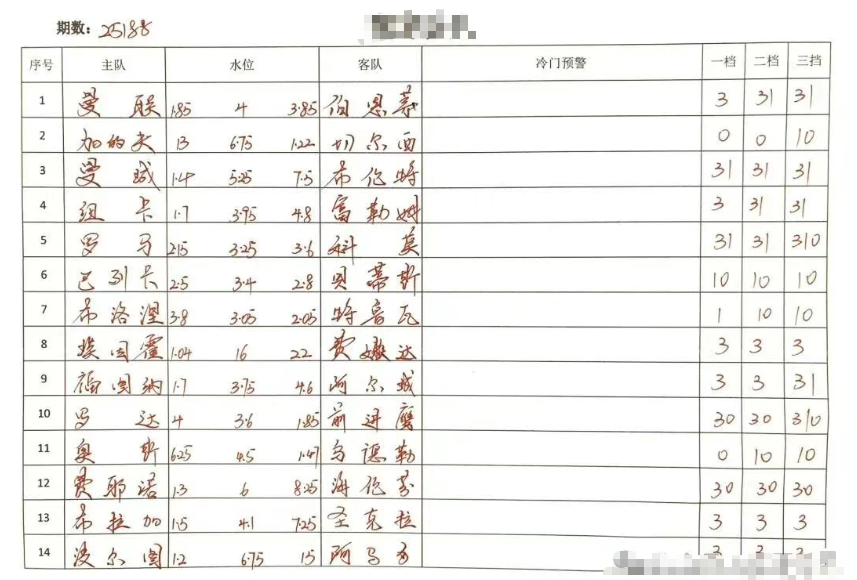 期数：25185
序号 主队 水位 客队 冷门预警 一档 二档 三挡
1 曼联 1.85 4 3.85 伯恩茅 3 31 31
2 加的夫 13 6.75 1.22 切尔西 0 0 10
3 曼城 1.4 5.25 7.5 布伦特 31 31 31
4 纽卡 1.7 3.95 4.8 富勒姆 3 31 31
5 罗马 2.15 3.25 3.6 科莫 31 31 310
6 巴列卡 2.5 3.4 2.8 贝蒂斯 10 10 10
7 布洛涅 3.8 3.05 2.05 特鲁瓦 1 10 10
8 埃因霍 1.04 16 22 费嫩达 3 3 3
9 福图纳 1.7 3.75 4.6 阿尔城 3 3 31
10 罗达 4 3.6 1.85 前进鹰 30 30 310
11 奥斯 6.25 4.5 1.41 乌德勒 0 10 10
12 费耶诺 1.3 6 8.25 海伦芬 30 30 30
13 布拉加 1.5 4.1 7.25 圣克拉 3 3 3
14 波尔图 1.2 6.75 15 阿马多